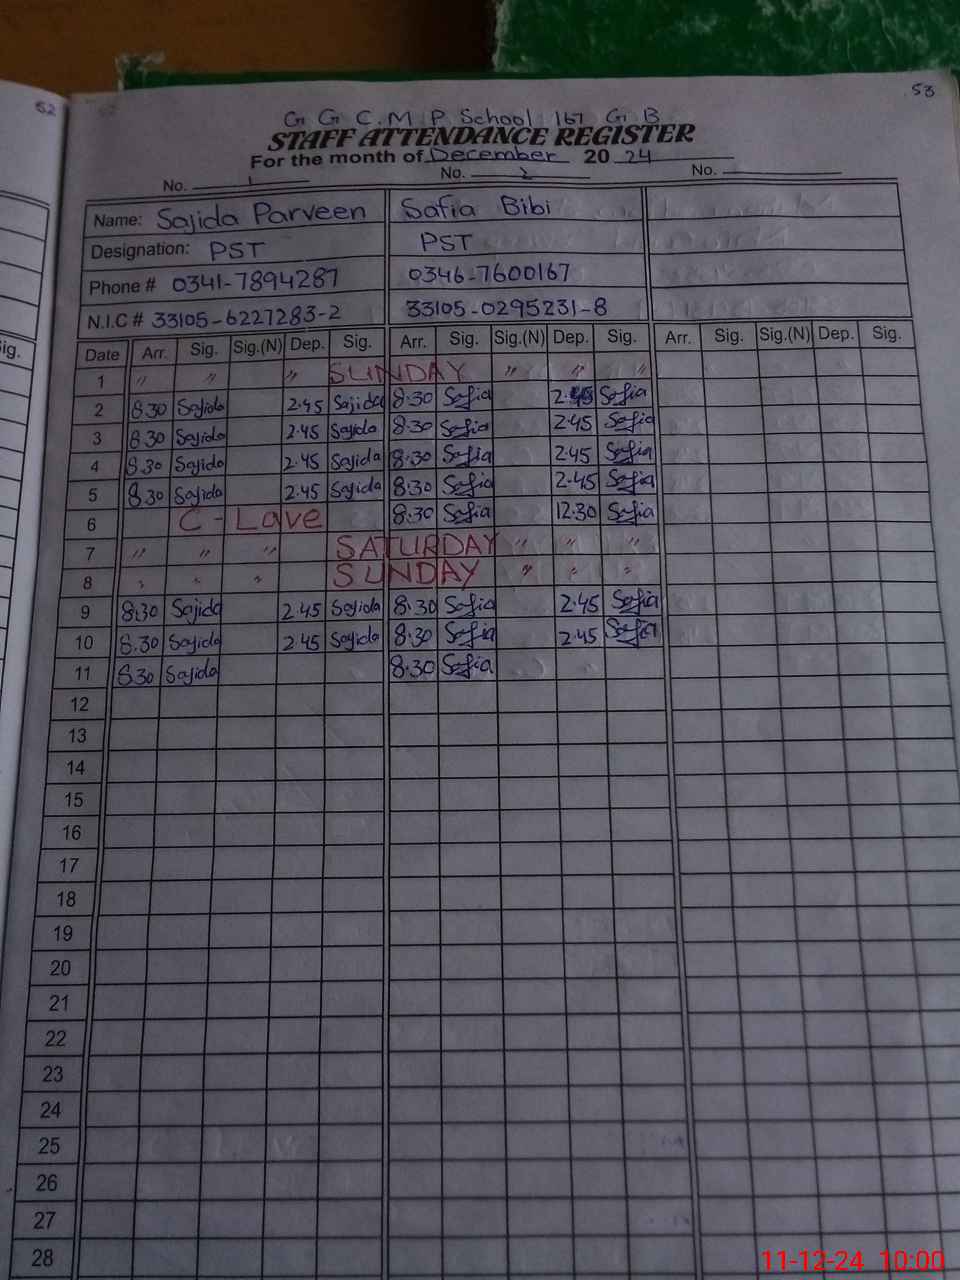 52
53
G G C.M P School 167 G B
STAFF ATTENDANCE REGISTER
For the month of December 20 24
No. 1 No. 2 No.
Name: Sajida Parveen Safia Bibi
Designation: PST PST
Phone # 0341-7894287 0346-7600167
N.I.C # 33105-6227283-2 33105-0295231-8
ig. Date Arr. Sig. Sig.(N) Dep. Sig. Arr. Sig. Sig.(N) Dep. Sig. Arr. Sig. Sig.(N) Dep. Sig.
1 " " " SUNDAY " " "
2 8.30 Sajida 2.45 Sajida 8.30 Safia 2.45 Safia
3 8.30 Sajida 2.45 Sajida 8.30 Safia 2.45 Safia
4 8.30 Sajida 2.45 Sajida 8.30 Safia 2.45 Safia
5 8.30 Sajida 2.45 Sajida 8.30 Safia 2.45 Safia
6 C - Lave 8.30 Safia 12.30 Safia
7 " " " SATURDAY " " "
8 " " " SUNDAY " " "
9 8.30 Sajida 2.45 Sajida 8.30 Safia 2.45 Safia
10 8.30 Sajida 2.45 Sajida 8.30 Safia 2.45 Safia
11 8.30 Sajida 8.30 Safia
12
13
14
15
16
17
18
19
20
21
22
23
24
25
26
27
28
11-12-24 10:00